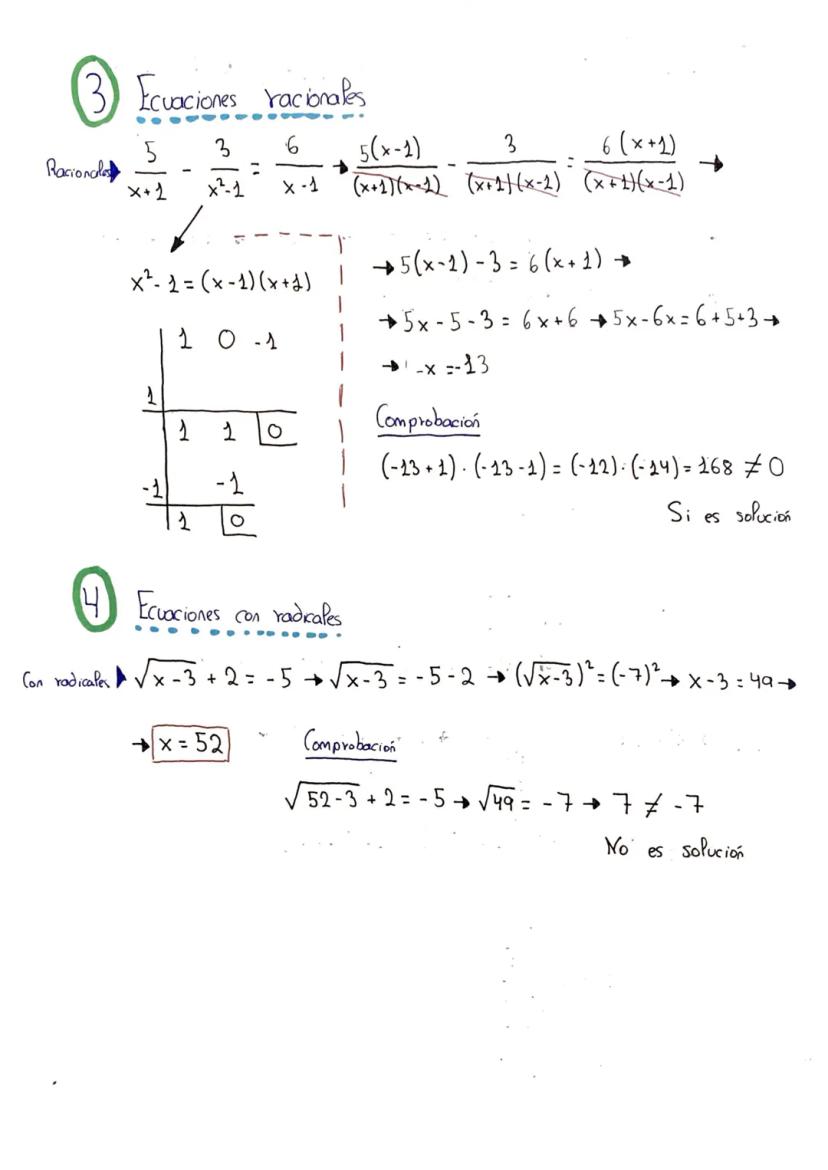 3 Ecuaciones racionales
Racionales 5/(x+1) - 3/(x²-1) = 6/(x-1) → 5(x-1)/((x+1)(x-1)) - 3/((x+1)(x-1)) = 6(x+1)/((x+1)(x-1)) →
x²-1=(x-1)(x+1)
1 0 -1
1
1 1 0
-1 -1
1 0
→ 5(x-1) - 3 = 6(x+1) →
→ 5x - 5 - 3 = 6x+6 → 5x-6x=6+5+3 →
→ -x =-13
Comprobación
(-13+1)·(-13-1)=(-12)·(-14)=168 ≠ 0
Si es solución
4 Ecuaciones con radicales
Con radicales √(x-3) + 2 = -5 → √(x-3) = -5-2 → (√(x-3))²=(-7)² → x-3=49 →
→ x=52 Comprobación
√(52-3) + 2 = -5 → √49 = -7 → 7 ≠ -7
No es solución